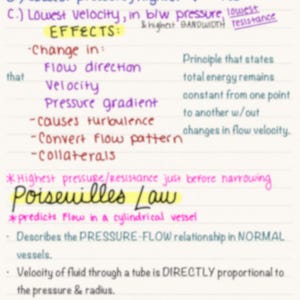 C.) Lowest velocity, in b/w pressure, lowest resistance
& highest BANDWIDTH
EFFECTS:
-Change in:
Flow direction
Velocity
Pressure gradient
-causes turbulence
-Convert flow pattern
-Collaterals
that
Principle that states
total energy remains
constant from one point
to another w/out
changes in flow velocity.
*Highest pressure/resistance just before narrowing
Poiseuilles Law
*predicts flow in a cylindrical vessel
· Describes the PRESSURE-FLOW relationship in NORMAL
vessels.
· Velocity of fluid through a tube is DIRECTLY proportional to
the pressure & radius.